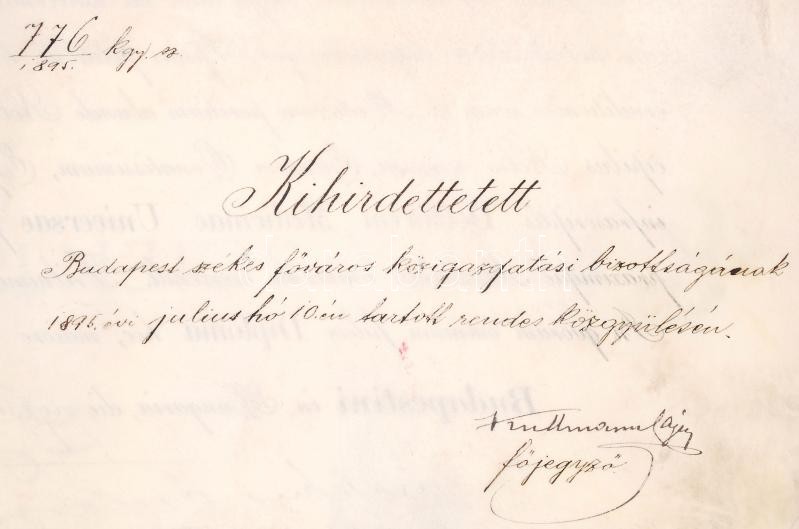 776 kgy. sz.
1895.
Kihirdettetett
Budapest székes főváros közigazgatási bizottságának
1895. évi julius hó 10.én tartott rendes közgyülésén.
főjegyző